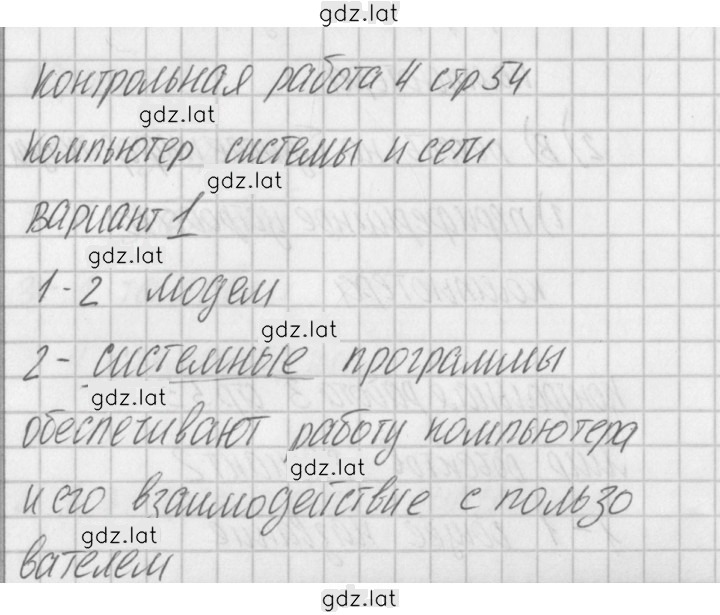 gdz.lat
контрольная работа 4 стр 54
gdz.lat
компьютер системы и сети
gdz.lat
вариант 1
gdz.lat
1-2 модем
gdz.lat
2- системные программы
gdz.lat
обеспечивают работу компьютера
gdz.lat
и его взаимодействие с пользо
gdz.lat
вателем
gdz.lat